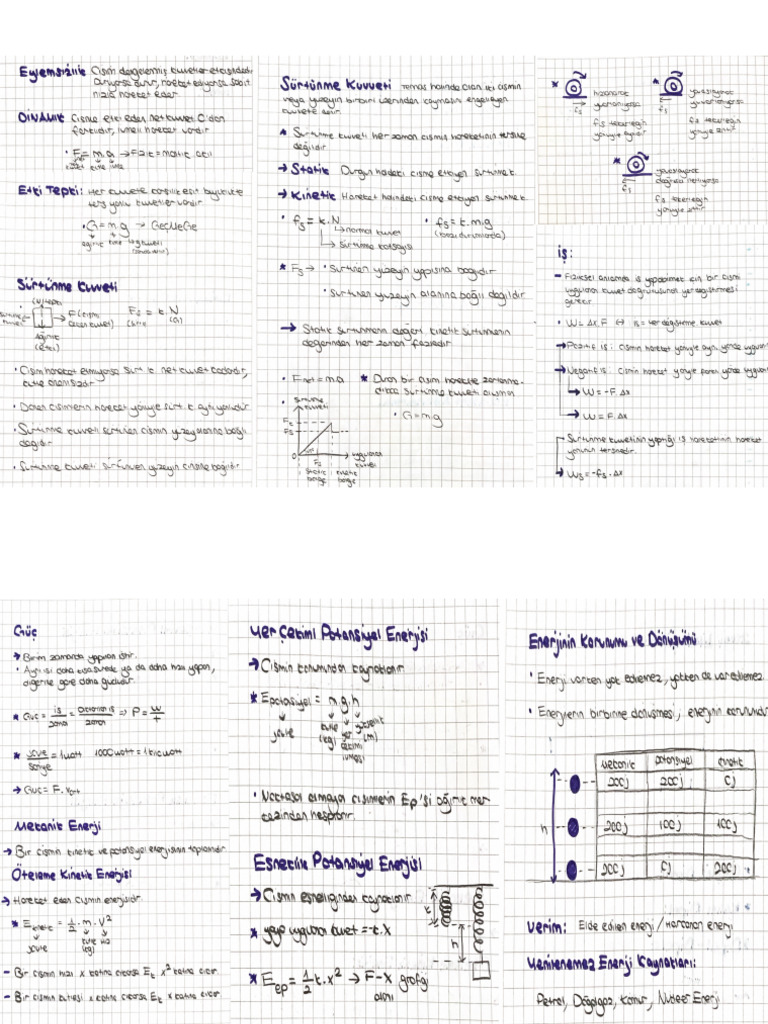 Eylemsizlik Cisim dengelenmiş kuvvetler etkisindedir.
Duruyorsa durur, hareket ediyorsa sabit
hızla hareket eder
DİNAMİK Cisme etki eden net kuvvet 0'dan
farklıdır, ivmeli hareket vardır
• F = m.g
kuvvet kütle ivme
Etki Tepki: Her kuvvete karşılık eşit büyüklükte
ters yönlü kuvvetler vardır
• G = m.g → 
ağırlık kütle
Sürtünme Kuvveti
N(Tepki)
F (cismi
Fs = k.N
ağırlık
(etki)
• Cisim hareket etmiyorsa sürt. k net kuvvet kadardır,
• Dönen cisimlerin hareket yönüyle sürt. k aynı yönlüdür
• Sürtünme kuvveti sürtünen cismin yüzey alanına bağlı
değildir
• Sürtünme kuvveti sürtünen yüzeyin cinsine bağlıdır
Sürtünme Kuvveti Temas halinde olan iki cismin
veya yüzeyin birbiri üzerinden kaymasını engelleyen
kuvvete denir
* Sürtünme kuvveti her zaman cismin hareketinin tersine
değildir
→ Statik Durgun haldeki cisme etkiyen sürtünme k.
→ Kinetik Hareket halindeki cisme etkiyen sürtünme k.
• fs = k.N • fs = k.m.g
→ normal kuvvet
→ Sürtünme katsayısı
* Fs → • Sürtünen yüzeyin yapısına bağlıdır
• Sürtünen yüzeyin alanına bağlı değildir
→ Statik sürtünmenin değeri kinetik sürtünmenin
değerinden her zaman fazladır
• Fnet = m.a * Duran bir cisim harekete zorlanma-
• G = m.g
Sürtünme
kuvveti
Fk
Fs
0
uygulanan
kuvvet
statik kinetik
bölge bölge
hızlanarak
yuvarlanıyorsa
fs tekerleğin
yönüyle aynıdır
yavaşlayarak
yuvarlanıyorsa
fs tekerleğin
yönüyle zıttır
fs tekerleğin
yönüyle zıttır
iş:
- Fiziksel anlamda iş yapabilmek için bir cismi
uygulanan kuvvet doğrultusunda yer değiştirmesi
gerekir
• W = Δx.F ↔ iş = yer değiştirme . kuvvet
→ Pozitif iş : Cismin hareket yönüyle aynı yönde
→ Negatif iş : Cismin hareket yönüyle
→ W = -F.Δx
→ W = F.Δx
Sürtünme kuvvetinin yaptığı iş hareketinin hareket
yönünün tersinedir.
→ Ws = -fs.Δx
Güç
→ Birim zamanda yapılan iştir.
• Aynı işi daha kısa sürede ya da daha hızlı yapan,
diğerine göre daha güçlüdür.
* Güç = iş/zaman = aktarılan iş/zaman → P = W/t
* joule/saniye = 1 watt 1000 watt = 1 kilowatt
→ Güç = F.Vort
Mekanik Enerji
→ Bir cismin kinetik ve potansiyel enerjisinin toplamıdır.
Öteleme Kinetik Enerjisi
→ Hareket eden cismin enerjisidir
* Ekinetik = 1/2 . m . V²
joule kütle hız
(kg)
- Bir cismin hızı x katına çıkarsa Ek x² katına çıkar
- Bir cismin kütlesi x katına çıkarsa Ek x katına çıkar
Yer Çekimi Potansiyel Enerjisi
→ Cismin konumundan kaynaklanır
* Epotansiyel = m.g.h
joule kütle yer yükseklik
(kg) çekimi (m)
ivmesi
• Noktasal olmayan cisimlerin Ep'si ağırlık mer
kezinden hesaplanır.
Esneklik Potansiyel Enerjisi
→ Cismin esnekliğinden kaynaklanır
* yaya uygulanan kuvvet = -k.x
* Eep = 1/2 k.x² → F-x grafiği
alanı
x
h
Enerjinin Korunumu ve Dönüşümü
• Enerji varken yok edilemez, yokken de var edilemez.
• Enerjilerin birbirine dönüşmesi, enerjinin korunumudur
mekanik potansiyel kinetik
200j 200j 0j
h 200j 100j 100j
200j 0j 200j
Verim: Elde edilen enerji / Harcanan enerji
Yenilenemez Enerji Kaynakları:
Petrol, Doğalgaz, Kömür, Nükleer Enerji